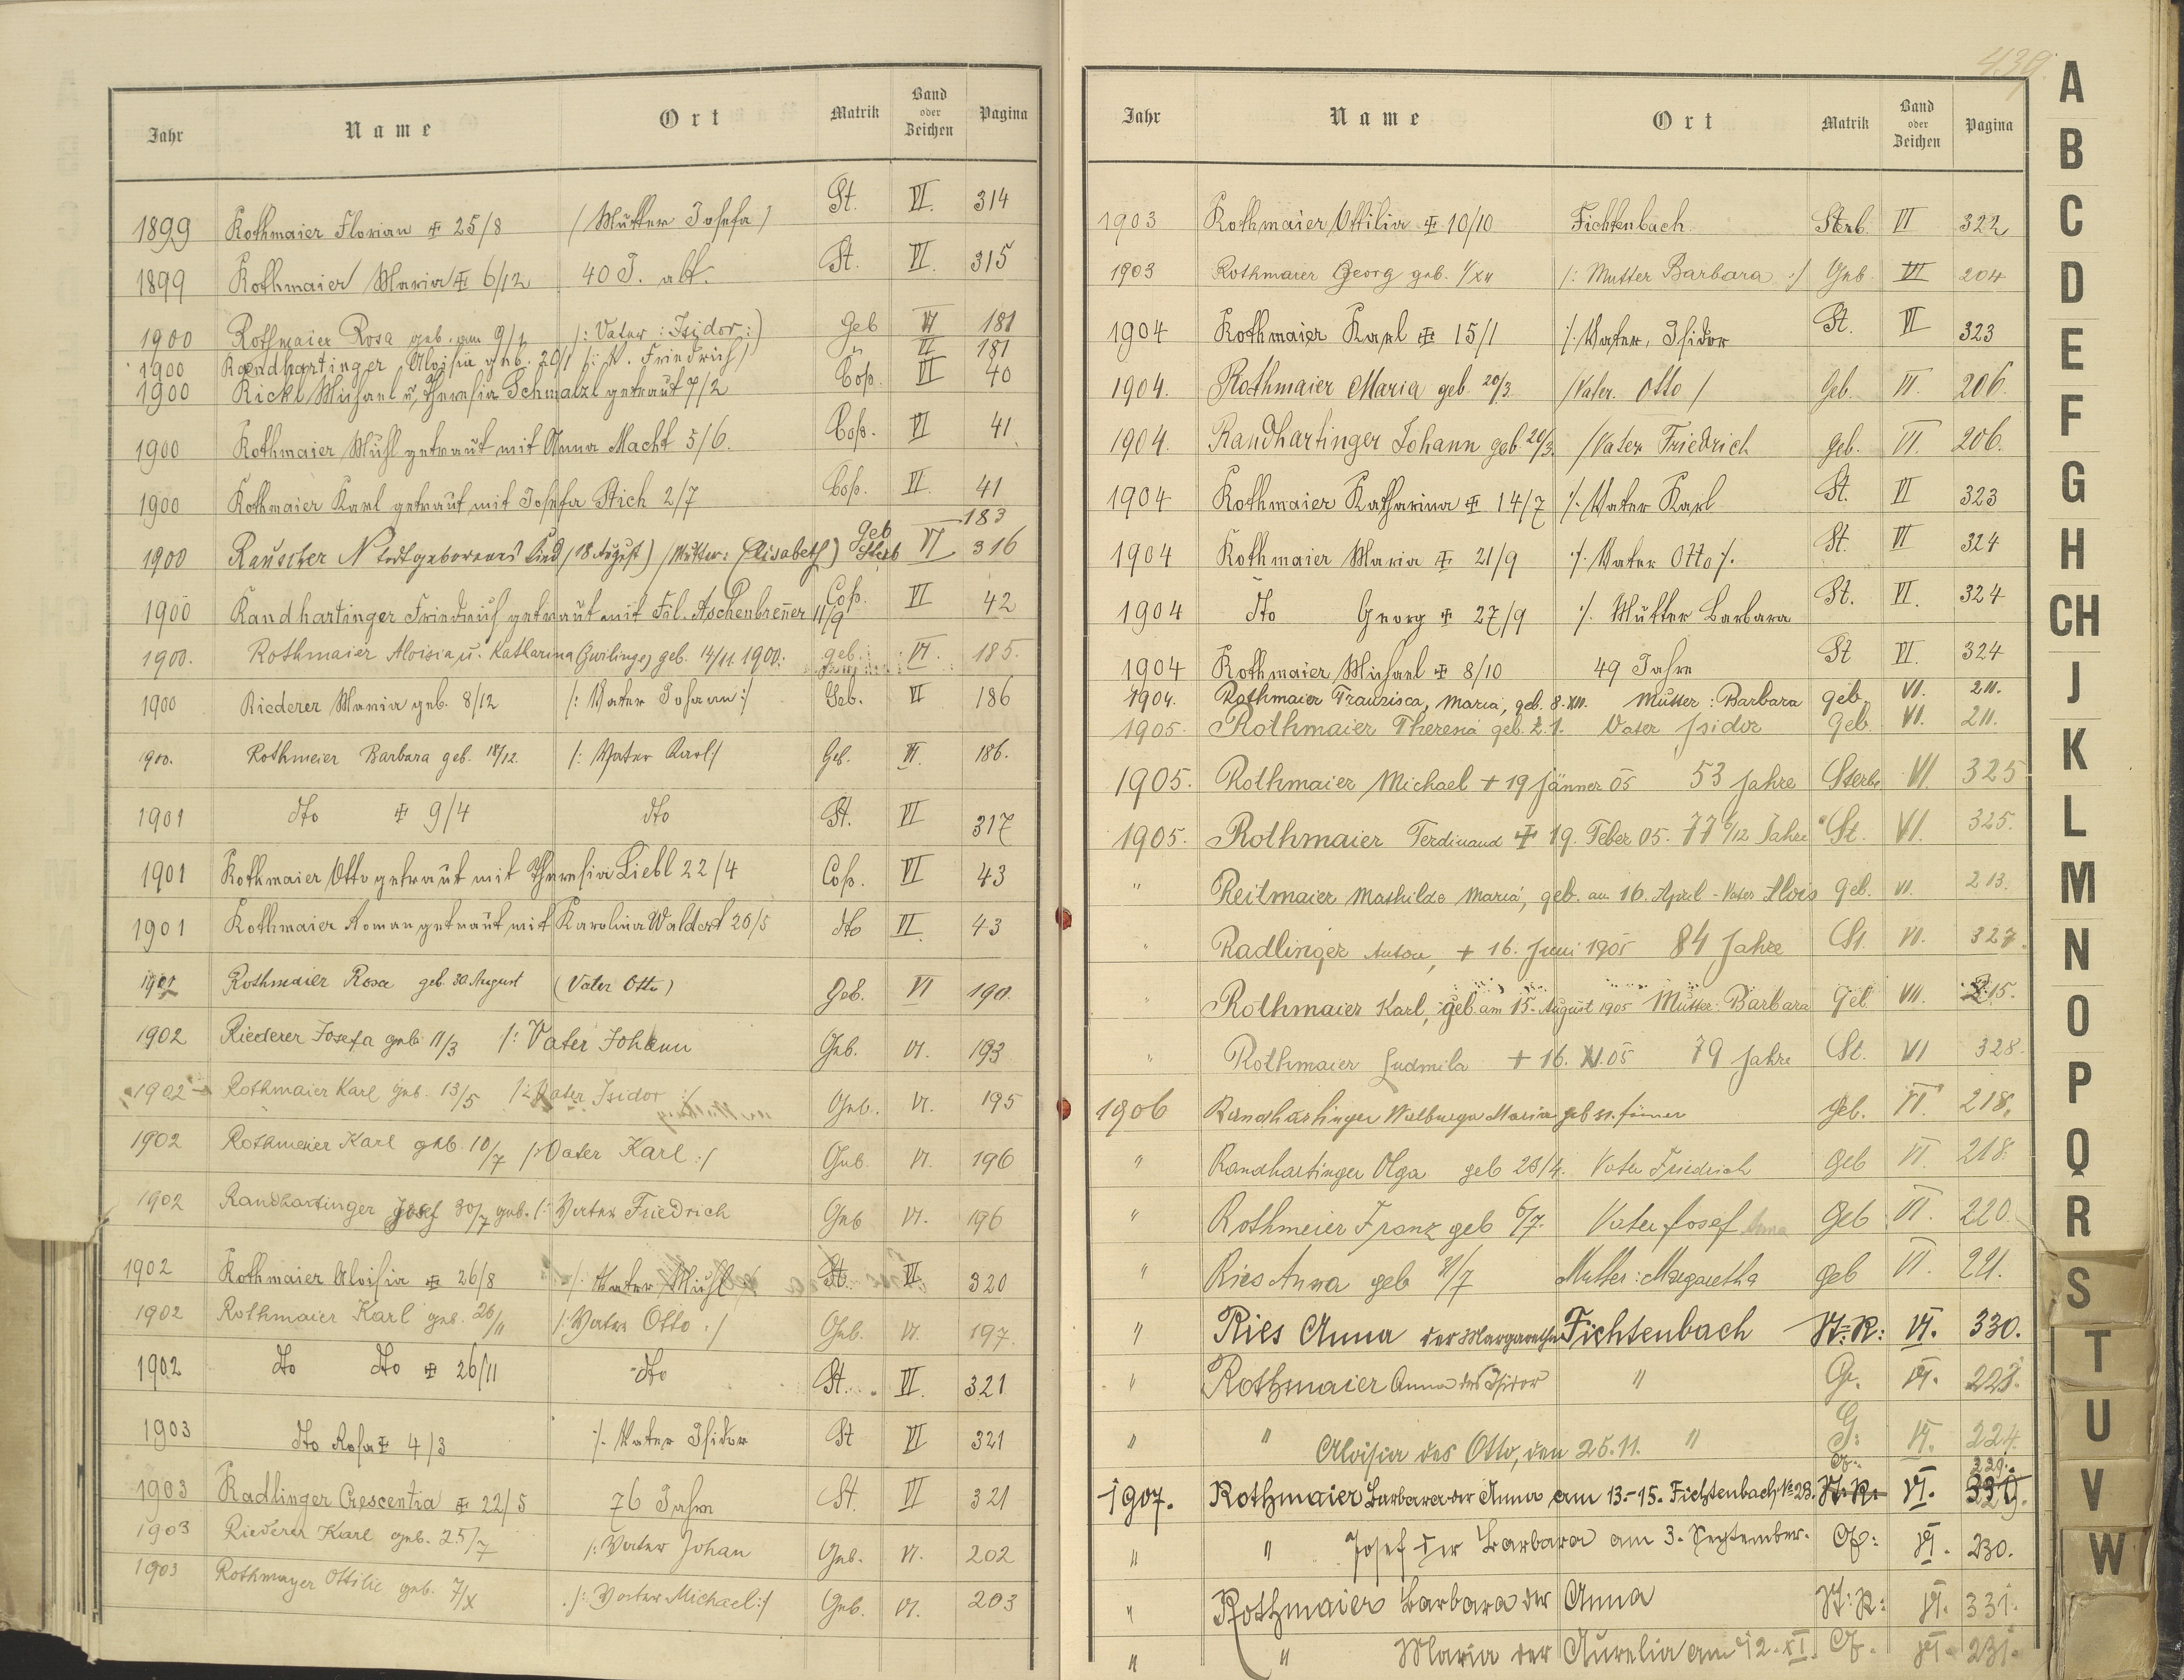 439
Jahr Name Ort Matrik Band oder Zeichen Pagina
1899 Rothmaier Florian 25/8 /Mutter Josefa/ St. VI. 314
1899 Rothmaier Maria 6/12 40 J. alt. St. VI. 315
1900 Rothmaier Rosa geb. am 9/1 /: Vater: Isidor:) Geb VI 181
1900 Randhartinger Aloisia geb. 20/1 /: V. Friedrich/ " VI 181
1900 Rickl Michael u. Theresia Schmalzl getraut 7/2 Cop. VI 40
1900 Rothmaier Michl getraut mit Anna Macht 5/6. Cop. VI 41.
1900 Rothmaier Karl getraut mit Josefa Stich 2/7 Cop. VI. 41
1900 Rauscher N todtgeborenes Kind (18 August) (Mutter: Elisabeth) Geb Sterb VI 183 316
1900 Randhartinger Friedrich getraut mit Fil. Aschenbrener 11/9 Cop. VI 42
1900. Rothmaier Aloisia u. Katharina (Zwilinge) geb. 14/11. 1900. geb. VI. 185.
1900 Riederer Maria geb. 8/12 /: Vater Johann:/ Geb. VI 186
1900. Rothmeier Barbara geb. 18/12. /: Vater Karl:/ Geb. VI. 186.
1901 dto 9/4 dto St. VI 317
1901 Rothmaier Otto getraut mit Theresia Liebl 22/4 Cop. VI 43
1901 Rothmaier Roman getraut mit Karolina Waldert 20/5 dto VI. 43
1901 Rothmaier Rosa geb. 30. August (Vater Otto) Geb. VI 190.
1902 Riederer Josefa geb. 11/3 /: Vater Johann Geb. VI. 193
1902 Rothmaier Karl geb. 13/5 /: Vater Isidor :/ Geb. VI. 195
1902 Rothmeier Karl geb. 10/7 /: Vater Karl :/ Geb. VI. 196
1902 Randhartinger Josef 30/7 geb. /: Vater Friedrich Geb VI. 196
1902 Rothmaier Aloisia 26/8 /: Vater Michl St. VI. 320
1902 Rothmaier Karl geb. 26/11 /: Vater Otto :/ Geb. VI. 197.
1902 dto dto 26/11 dto St. VI. 321
1903 dto Rosa 4/3 /. Vater Isidor St VI 321
1903 Radlinger Crescentia 22/5 76 Jahre St VI 321
1903 Riederer Karl geb. 25/7 /: Vater Johan Geb. VI. 202
1903 Rothmayer Ottilie geb. 7/X ./: Vater Michael:/ Geb. VI. 203
Jahr Name Ort Matrik Band oder Zeichen Pagina
1903 Rothmaier Ottilia 10/10 Fichtenbach Sterb. VI 322
1903 Rothmaier Georg geb. 1/XII /: Mutter Barbara :/ Geb. VI 204
1904 Rothmaier Karl 15/1 /. Vater, Isidor St. VI 323
1904. Rothmaier Maria geb. 20/3. /Vater. Otto / Geb. VI. 206.
1904. Randhartinger Johann geb. 20/3. /Vater Friedrich geb. VI. 206.
1904 Rothmaier Katharina 14/7 /. Vater Karl St. VI 323
1904 Rothmaier Maria 21/9 /. Vater Otto /. St. VI 324
1904 dto Georg 27/9 /. Mutter Barbara St. VI. 324
1904 Rothmaier Michael 8/10 49 Jahre St VI. 324
1904. Rothmaier Franzisca, Maria, geb. 8. XII. Mutter: Barbara geb. VI. 211.
1905. Rothmaier Theresia geb. 2.1. Vater Isidor Geb. VI. 211.
1905. Rothmaier Michael + 19 Jänner 05 53 Jahre Sterbe VI. 325
1905. Rothmaier Ferdinand 19. Feber 05. 77 6/12 Jahre St. VI. 325.
" Reitmaier Mathilde Maria, geb. am 16. April - Vater Alois Geb. VI. 213.
" Radlinger Anton, + 16. Juni 1905 84 Jahre St. VI. 327.
" Rothmaier Karl, geb. am 15. August 1905 Mutter: Barbara Geb VII. 215.
" Rothmaier Ludmila + 16. XI. 05 79 Jahre St. VI 328.
1906 Randhartinger Walburga Maria geb 31. Jänner Geb. VI. 218.
" Randhartinger Olga geb 23/4. Vater Friedrich Geb VI 218.
" Rothmeier Franz geb 6/7. Vater Josef Geb VI. 220.
" Ries Anna geb 11/7 Mutter: Margaretha Geb VI. 221.
" Ries Anna der Margarethe Fichtenbach St: R: VI. 330.
" Rothmaier Anna des Isidor " G. VI. 223.
" " Aloisia des Otto, den 25.11. " G: VI. 224.
1907. Rothmaier Barbara der Anna am 13.-15. Fichtenbach № 28. G: St: R: VI. 229. 330.
" " Josef der Barbara am 3. September. G: VI. 230.
" Rothmaier Barbara der Anna St: R: VI. 331.
" " Maria der Aurelia am 12. XI. G. VI. 231.
A
B
C
D
E
F
G
H
CH
J
K
L
M
N
O
P
Q
R
S
T
U
V
W